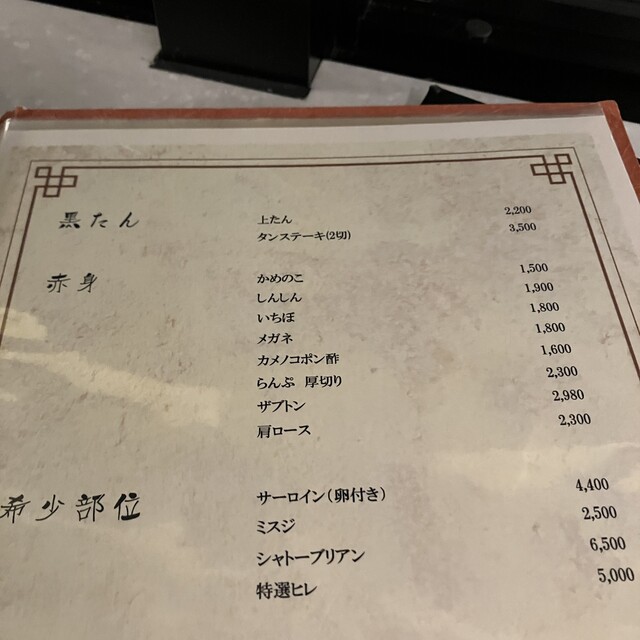 黒たん
上たん 2,200
タンステーキ(2切) 3,500
赤身
かめのこ 1,500
しんしん 1,900
いちぼ 1,800
メガネ 1,800
カメノコポン酢 1,600
らんぷ 厚切り 2,300
ザブトン 2,980
肩ロース 2,300
希少部位
サーロイン(卵付き) 4,400
ミスジ 2,500
シャトーブリアン 6,500
特選ヒレ 5,000